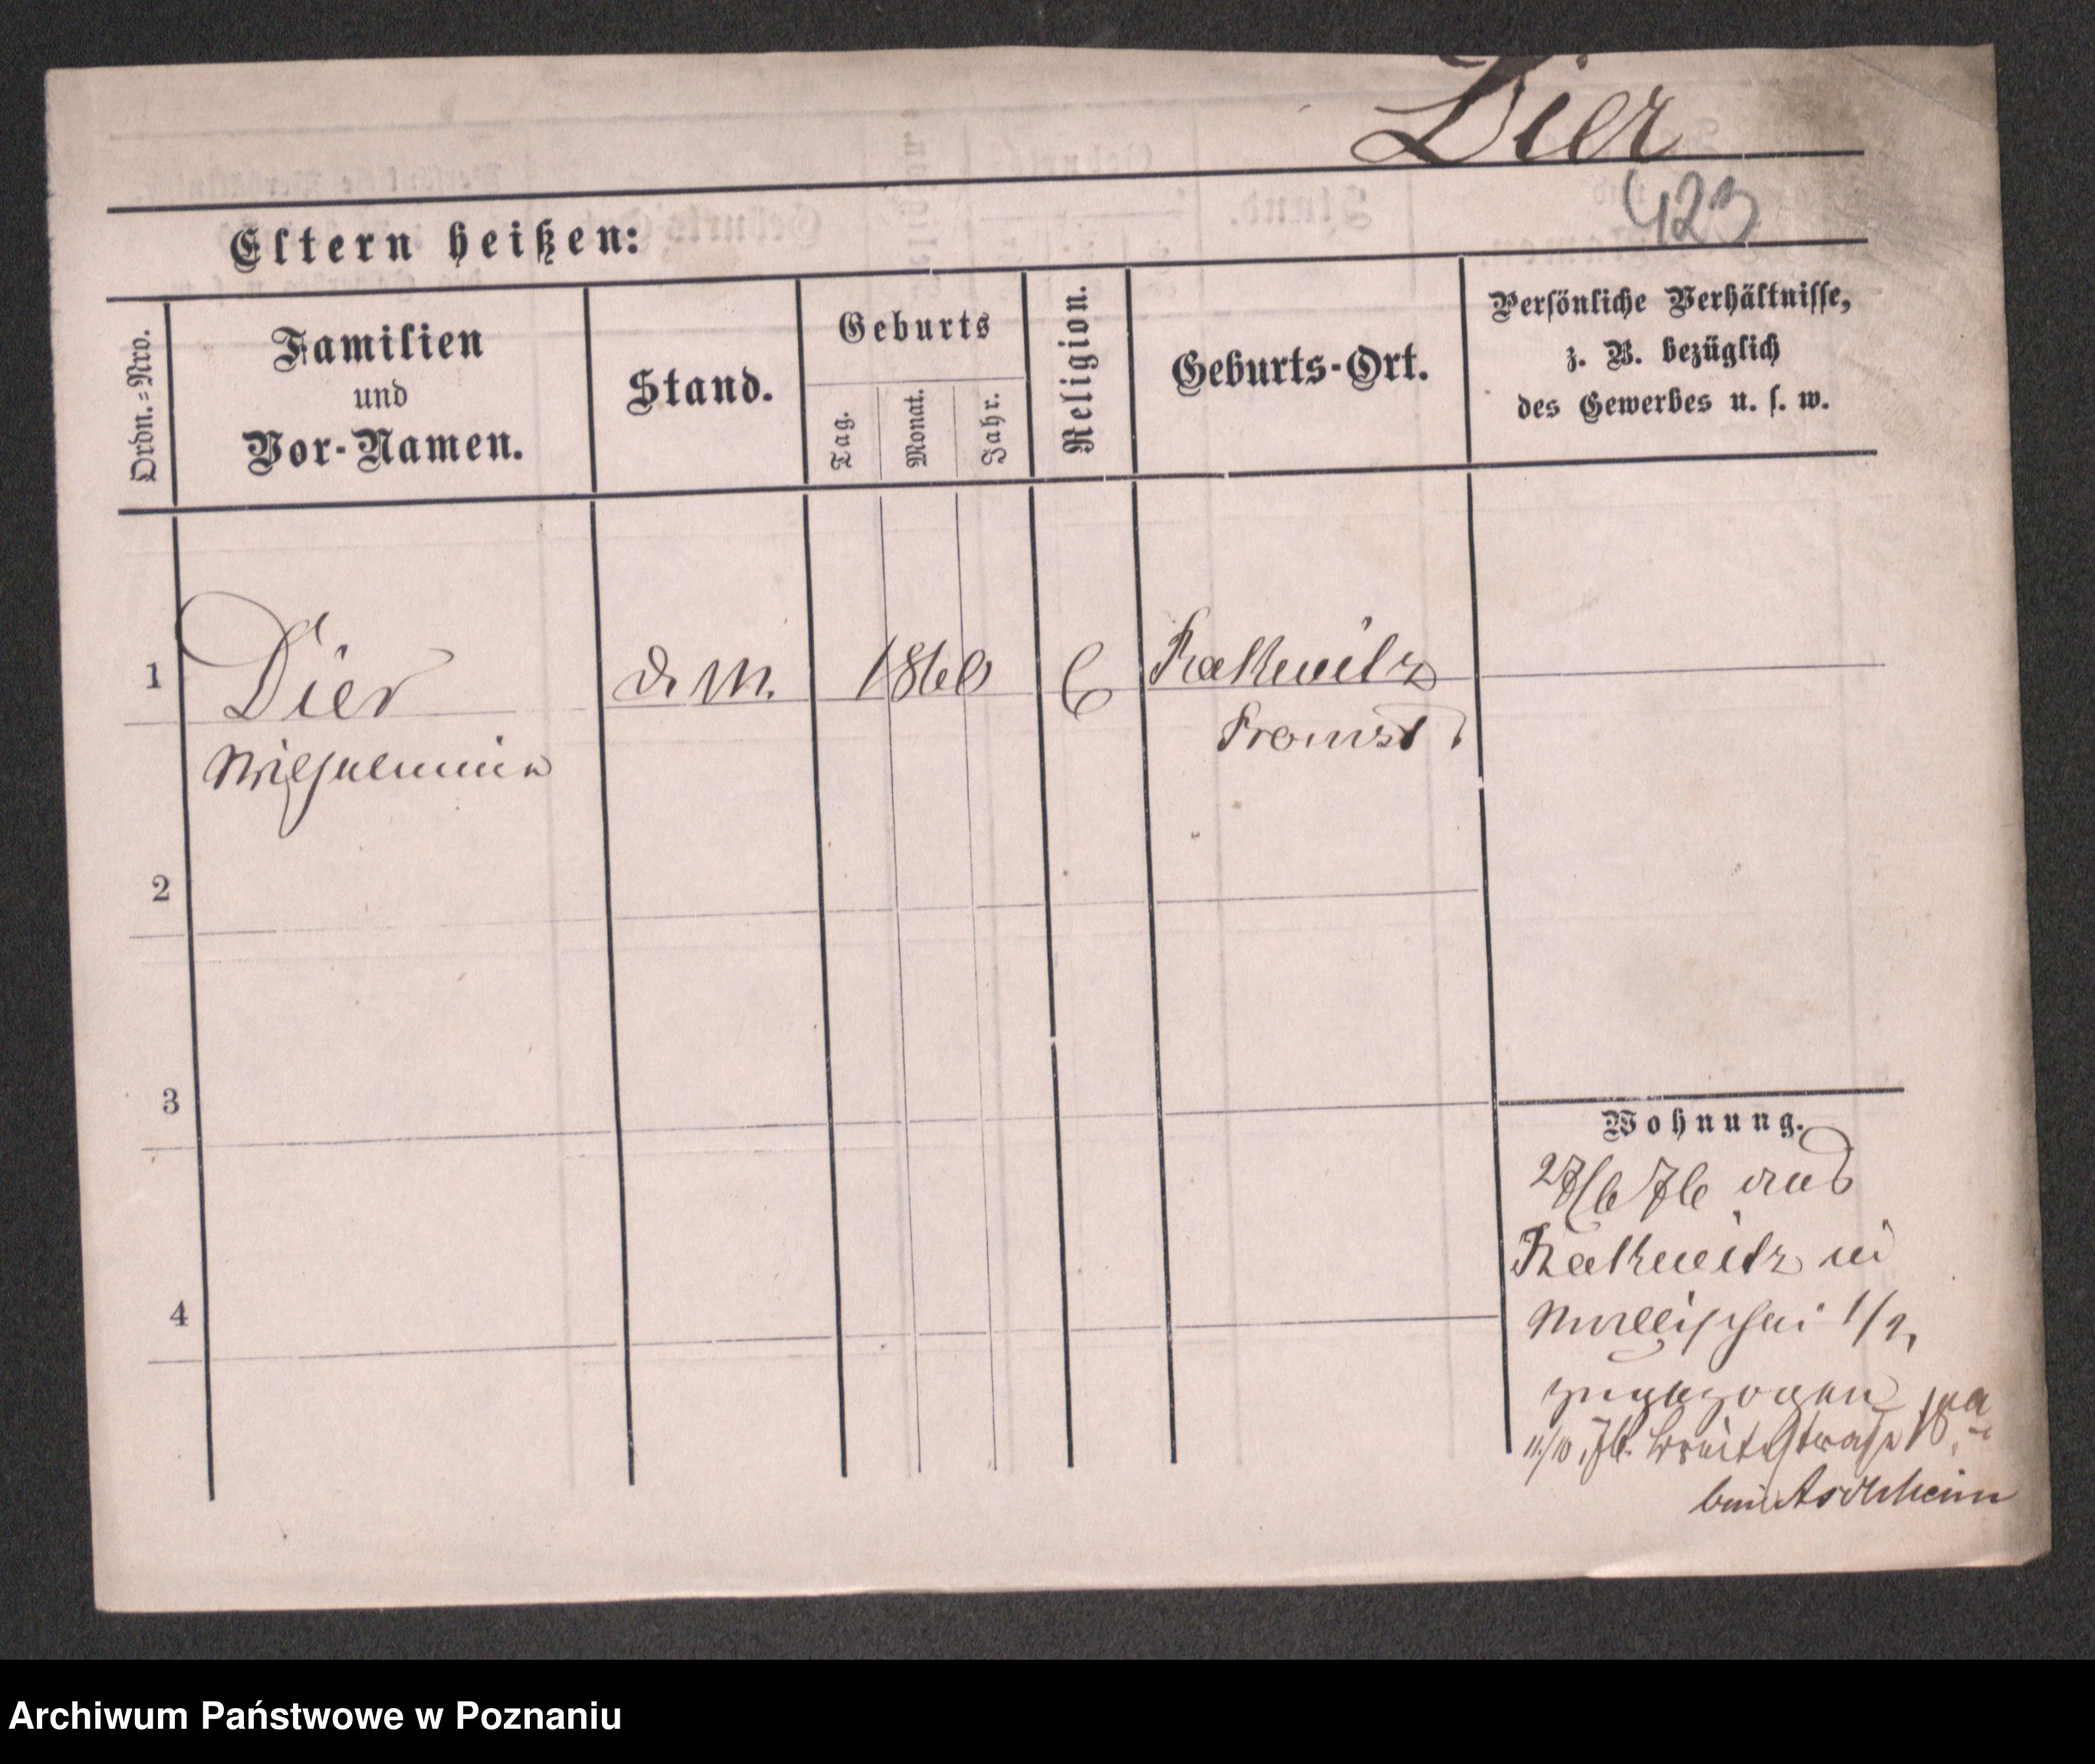 Dier
423
Eltern heißen:
Ordn.=Nro.
Familien
und
Vor-Namen.
Stand.
Geburts
Tag.
Monat.
Jahr.
Religion.
Geburts-Ort.
Persönliche Verhältnisse,
z. B. bezüglich
des Gewerbes u. s. w.
1
Dier
d. M.
1860
Rakwitz
Wilhelmine
2
3
4
Wohnung.
27/6 76 aus
Rakwitz in
Wallischei 1/2,
zugezogen
11/10. 76. Breitestraße
bei Aschheim
Archiwum Państwowe w Poznaniu